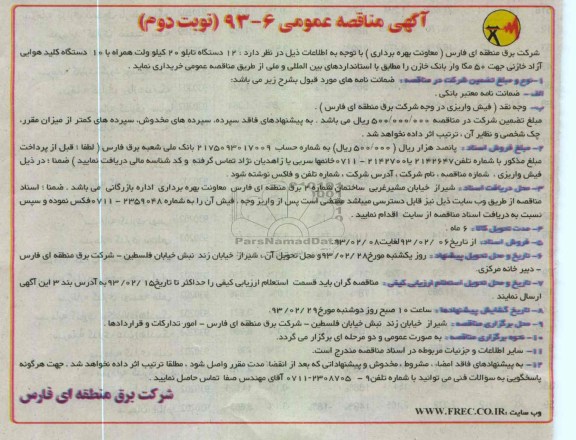 آگهی مناقصه عمومی ۶-۹۳ (نوبت دوم)
شرکت برق منطقه ای فارس ( معاونت بهره برداری ) با توجه به اطلاعات ذیل در نظر دارد : ۱۲ دستگاه تابلو ۲۰ کیلو ولت همراه با ۱۰ دستگاه کلید هوایی
آزاد خازنی جهت ۵۰ مگا وار بانک خازن را مطابق با استانداردهای بین المللی و ملی از طریق مناقصه عمومی خریداری نماید .
۱-نوع و مبلغ تضمین شرکت در مناقصه : ضمانت نامه های مورد قبول بشرح زیر می باشد:
الف - ضمانت نامه معتبر بانکی .
ب- وجه نقد ( فیش واریزی در وجه شرکت برق منطقه ای فارس ) .
مبلغ تضمین شرکت در مناقصه ۵۰۰/۰۰۰/۰۰۰ ریال می باشد . به پیشنهادهای فاقد سپرده، سپرده های مخدوش، سپرده های کمتر از میزان مقرر،
چک شخصی و نظایر آن ، ترتیب اثر داده نخواهد شد .
۲- مبلغ فروش اسناد : پانصد هزار ریال ( ۵۰۰/۰۰۰ ریال) به شماره حساب ۲۱۷۵۰۹۳۰۱۷۰۰۹ بانک ملی شعبه برق فارس ( لطفا : قبل از پرداخت
مبلغ مذکور با شماره تلفن ۲۱۴۲۶۴۷ یا ۲۱۴۲۷۰۰ - ۰۷۱۱ خانمها سربی یا زاهدیان نژاد تماس گرفته و کد شناسه مالی دریافت نمایید ) ضمنا : در ذیل
فیش واریزی ، شماره مناقصه ، نام شرکت ، آدرس شرکت ، شماره تلفن و فاکس نوشته شود .
۳- محل دریافت اسناد : شیراز خیابان مشیرغربی ساختمان شماره ۲ برق منطقه ای فارس معاونت بهره برداری اداره بازرگانی می باشد . ضمنا : اسناد
مناقصه از طریق وب سایت ذیل نیز قابل دسترسی میباشد مقتضی است پس از واریز وجه ، فیش آن را به شماره ۲۳۵۹۰۴۸ - ۰۷۱۱ فکس نموده و سپس
نسبت به دریافت اسناد مناقصه از سایت اقدام نمایید .
۴- مدت تحویل کالا : ۶ ماه .
۵- فروش اسناد : از تاریخ ۰۶ /۹۳/۰۲ لغایت ۰۸ /۹۳/۰۲.
۶- تاریخ و محل تحویل پیشنهاد : روز یکشنبه مورخ ۲۸ /۹۳/۰۲ و محل تحویل آن ، شیراز خیابان زند نبش خیابان فلسطین - شرکت برق منطقه ای فارس
- دبیر خانه مرکزی.
۷- تاریخ و محل تحویل استعلام ارزیابی کیفی : مناقصه گران باید قسمت استعلام ارزیابی کیفی را حداکثر تا تاریخ ۱۵ /۹۳/۰۲ به آدرس بند ۳ این آگهی
ارسال نمایند .
۸- تاریخ گشایش پیشنهادها : ساعت ۱۰ صبح روز دوشنبه مورخ ۲۹ /۹۳/۰۲.
۹- محل برگزاری مناقصه : شیراز خیابان زند نبش خیابان فلسطین - شرکت برق منطقه ای فارس - امور تدارکات و قراردادها .
۱۰- نحوه برگزاری مناقصه : به صورت عمومی و دو مرحله ای برگزار می گردد.
۱۱- سایر اطلاعات و جزئیات مربوطه در اسناد مناقصه مندرج است.
۱۲- به پیشنهادهای فاقد امضاء ، مشروط ، مخدوش و پیشنهاداتی که بعد از انقضا مدت مقرر واصل شود ، مطلقا ترتیب اثر داده نخواهد شد . جهت هرگونه
پاسخگویی به سوالات فنی می توانید با شماره تلفن ۹ - ۲۳۰۸۷۰۵ -۰۷۱۱ آقای مهندس صفا تماس حاصل نمایید .
وب سایت : WWW.FREC.CO.IR
شرکت برق منطقه ای فارس
ParsNamadData